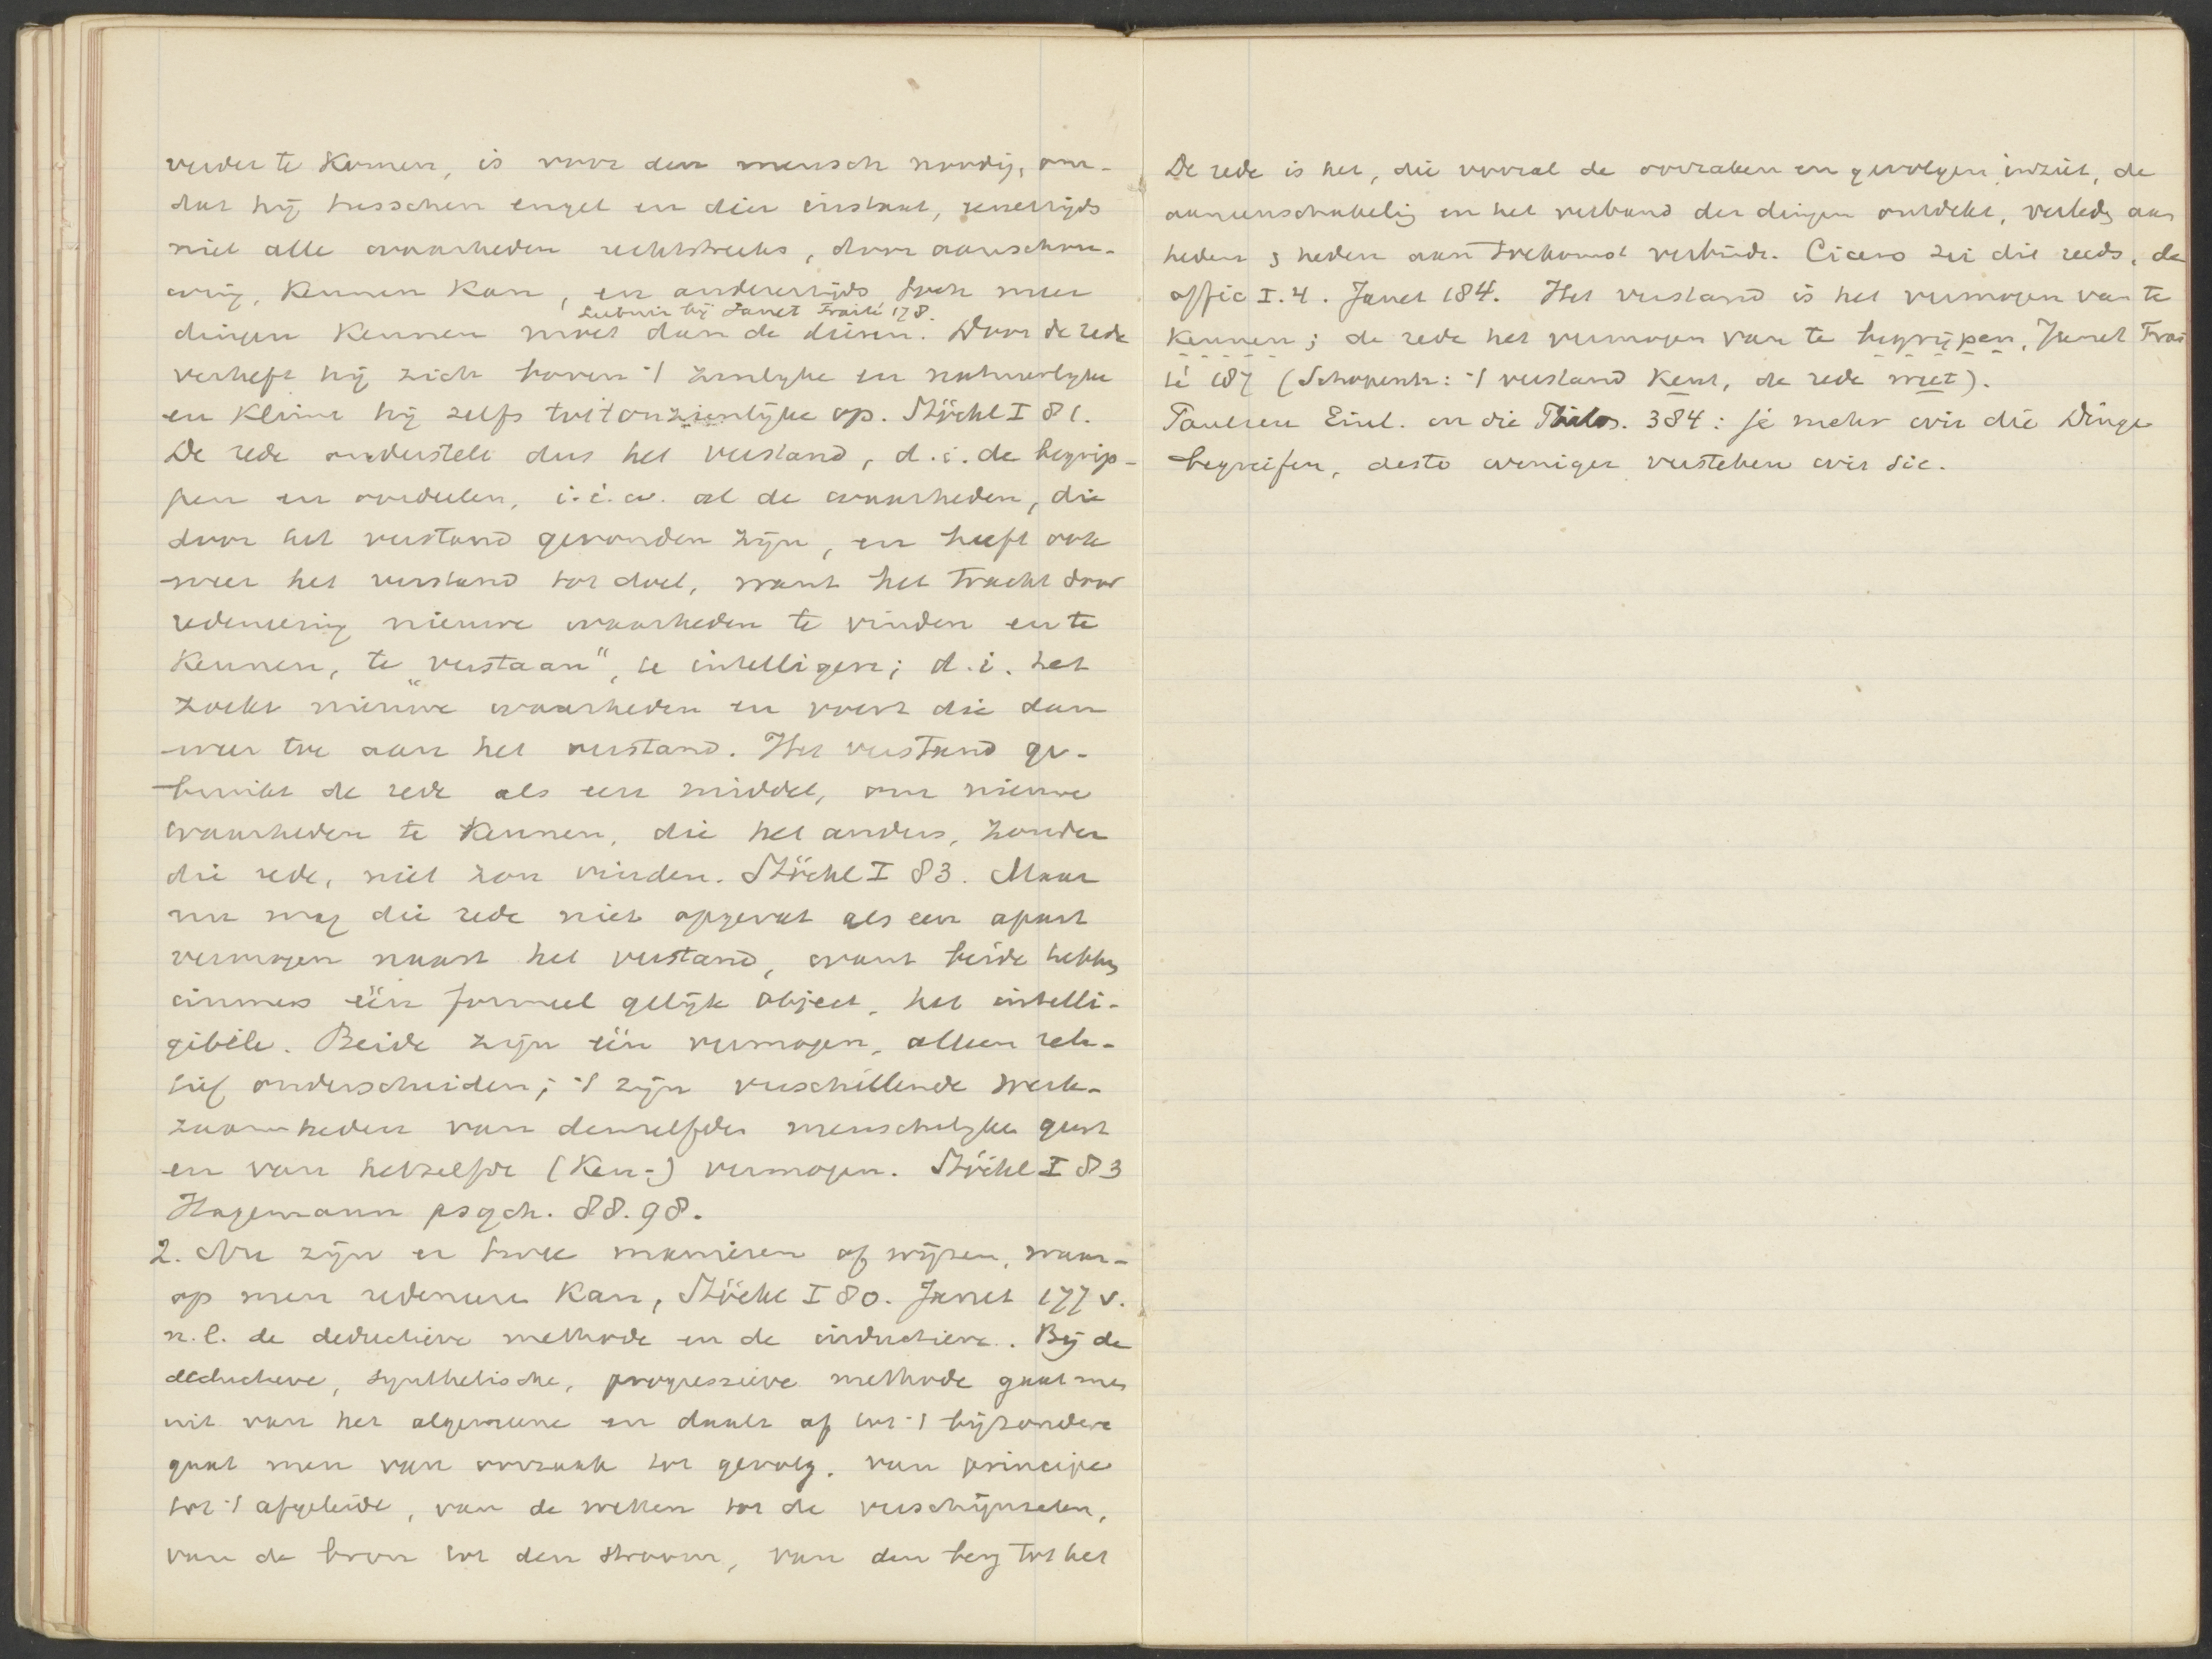 verder te komen, is voor den mensch noodig, om-
dat hij tusschen engel en dier instaat, eenerzijds
niet alle waarheden rechtstreeks, door aanschou-
wing, kennen kan, en anderzijds toch meer
Leibniz bij Janet Traité 178.
dingen kennen moet dan de dieren. Door de rede
verheft hij zich boven 't zinlijke en natuurlijke
en klimt hij zelfs tot 't onzienlijke op. Stöckl I 81.
De rede onderstelt dus het verstand, d.i. de begrip-
pen en oordeelen, i.é.w. al de waarheden, die
door het verstand gevonden zijn, en heeft ook
weer het verstand tot doel, want het tracht door
redeneering nieuwe waarheden te vinden en te
kennen, te „verstaan", te intelligere; d.i. het
zoekt nieuwe waarheden en voert die dan
weer toe aan het verstand. Het verstand ge-
bruikt de rede als een middel, om nieuwe
waarheden te kennen, die het anders, zonder
die rede, niet zou vinden. Stöckl I 83. Maar
nu mag die rede niet opgevat als een apart
vermogen naast het verstand, want beide hebben
immers één formeel gelijk object, het intelli-
gibele. Beide zijn één vermogen, alleen rela-
tief onderscheiden; 't zijn verschillende werk-
zaamheden van denzelfden menschelijken geest
en van hetzelfde (ken-) vermogen. Stöckl I 83
Hagemann psych. 88.98.
2. Nu zijn er twee manieren of wijzen, waar-
op men redeneren kan, Stöckl I 80. Janet 177 v.
n.l. de deductieve methode en de inductieve. Bij de
deductieve, synthetische, progressieve methode gaat men
uit van het algemeene en daalt af tot 't bijzondere
gaat men van oorzaak tot gevolg, van principe
tot 't afgeleide, van de wetten tot de verschijnselen,
van de bron tot den stroom, van den berg tot het
De rede is het, die vooral de oorzaken en gevolgen inziet, de
aaneenschakeling en het verband der dingen ontdekt, verleden aan
heden & heden aan toekomst verbindt. Cicero zei dit reeds, de
offic I.4. Janet 184. Het verstand is het vermogen van te
kennen; de rede het vermogen van te begrijpen, Janet Trai
té 187 (Schopenh: 't verstand kent, de rede weet).
Paulsen Einl. in die Philos. 384: je mehr wir die Dinge
begreifen, desto weniger verstehen wir sie.